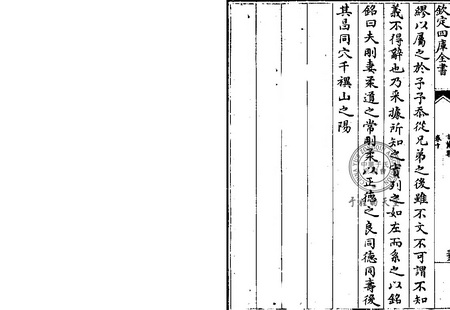 欽定四庫全書
卷十
繆以屬之於予予忝從兄弟之後雖不文不可謂不知
義不得辭也乃采據所知之實列之如左而系之以銘
銘曰夫剛妻柔道之常剛柔以正德之良同德同壽後
其昌同穴千禩山之陽